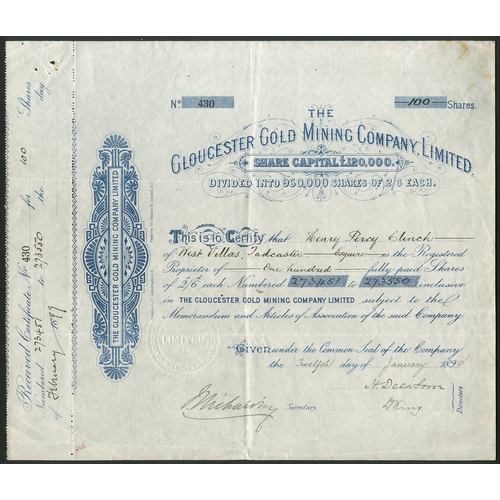 Nº 430
100 Shares.
THE
GLOUCESTER GOLD MINING COMPANY, LIMITED.
SHARE CAPITAL £120,000.
DIVIDED INTO 960,000 SHARES OF 2/6 EACH.
This is to Certify that Henry Percy Clinch
of West Villas, Tadcaster Esquire is the Registered
Proprietor of One hundred fully paid Shares
of 2/6 each, Numbered 273451 to 273550 inclusive
in THE GLOUCESTER GOLD MINING COMPANY LIMITED subject to the
Memorandum and Articles of Association of the said Company.
Given under the Common Seal of the Company
the Twelfth day of January 189
Secretary
Directors
THE GLOUCESTER GOLD MINING COMPANY LIMITED
Received Certificate Nº 430 for 100 Shares
Numbered 273451 to 273550 the day
of February 1897